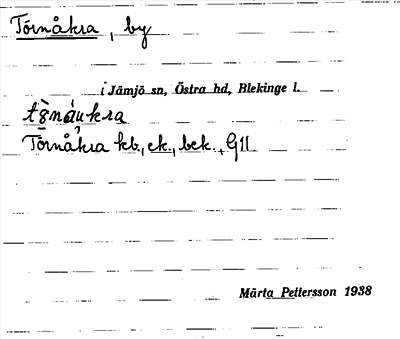 Törnåkra, by
i Jämjö sn, Östra hd, Blekinge l.
Törnåkra kb., ek., bek., G11
Märta Pettersson 1938